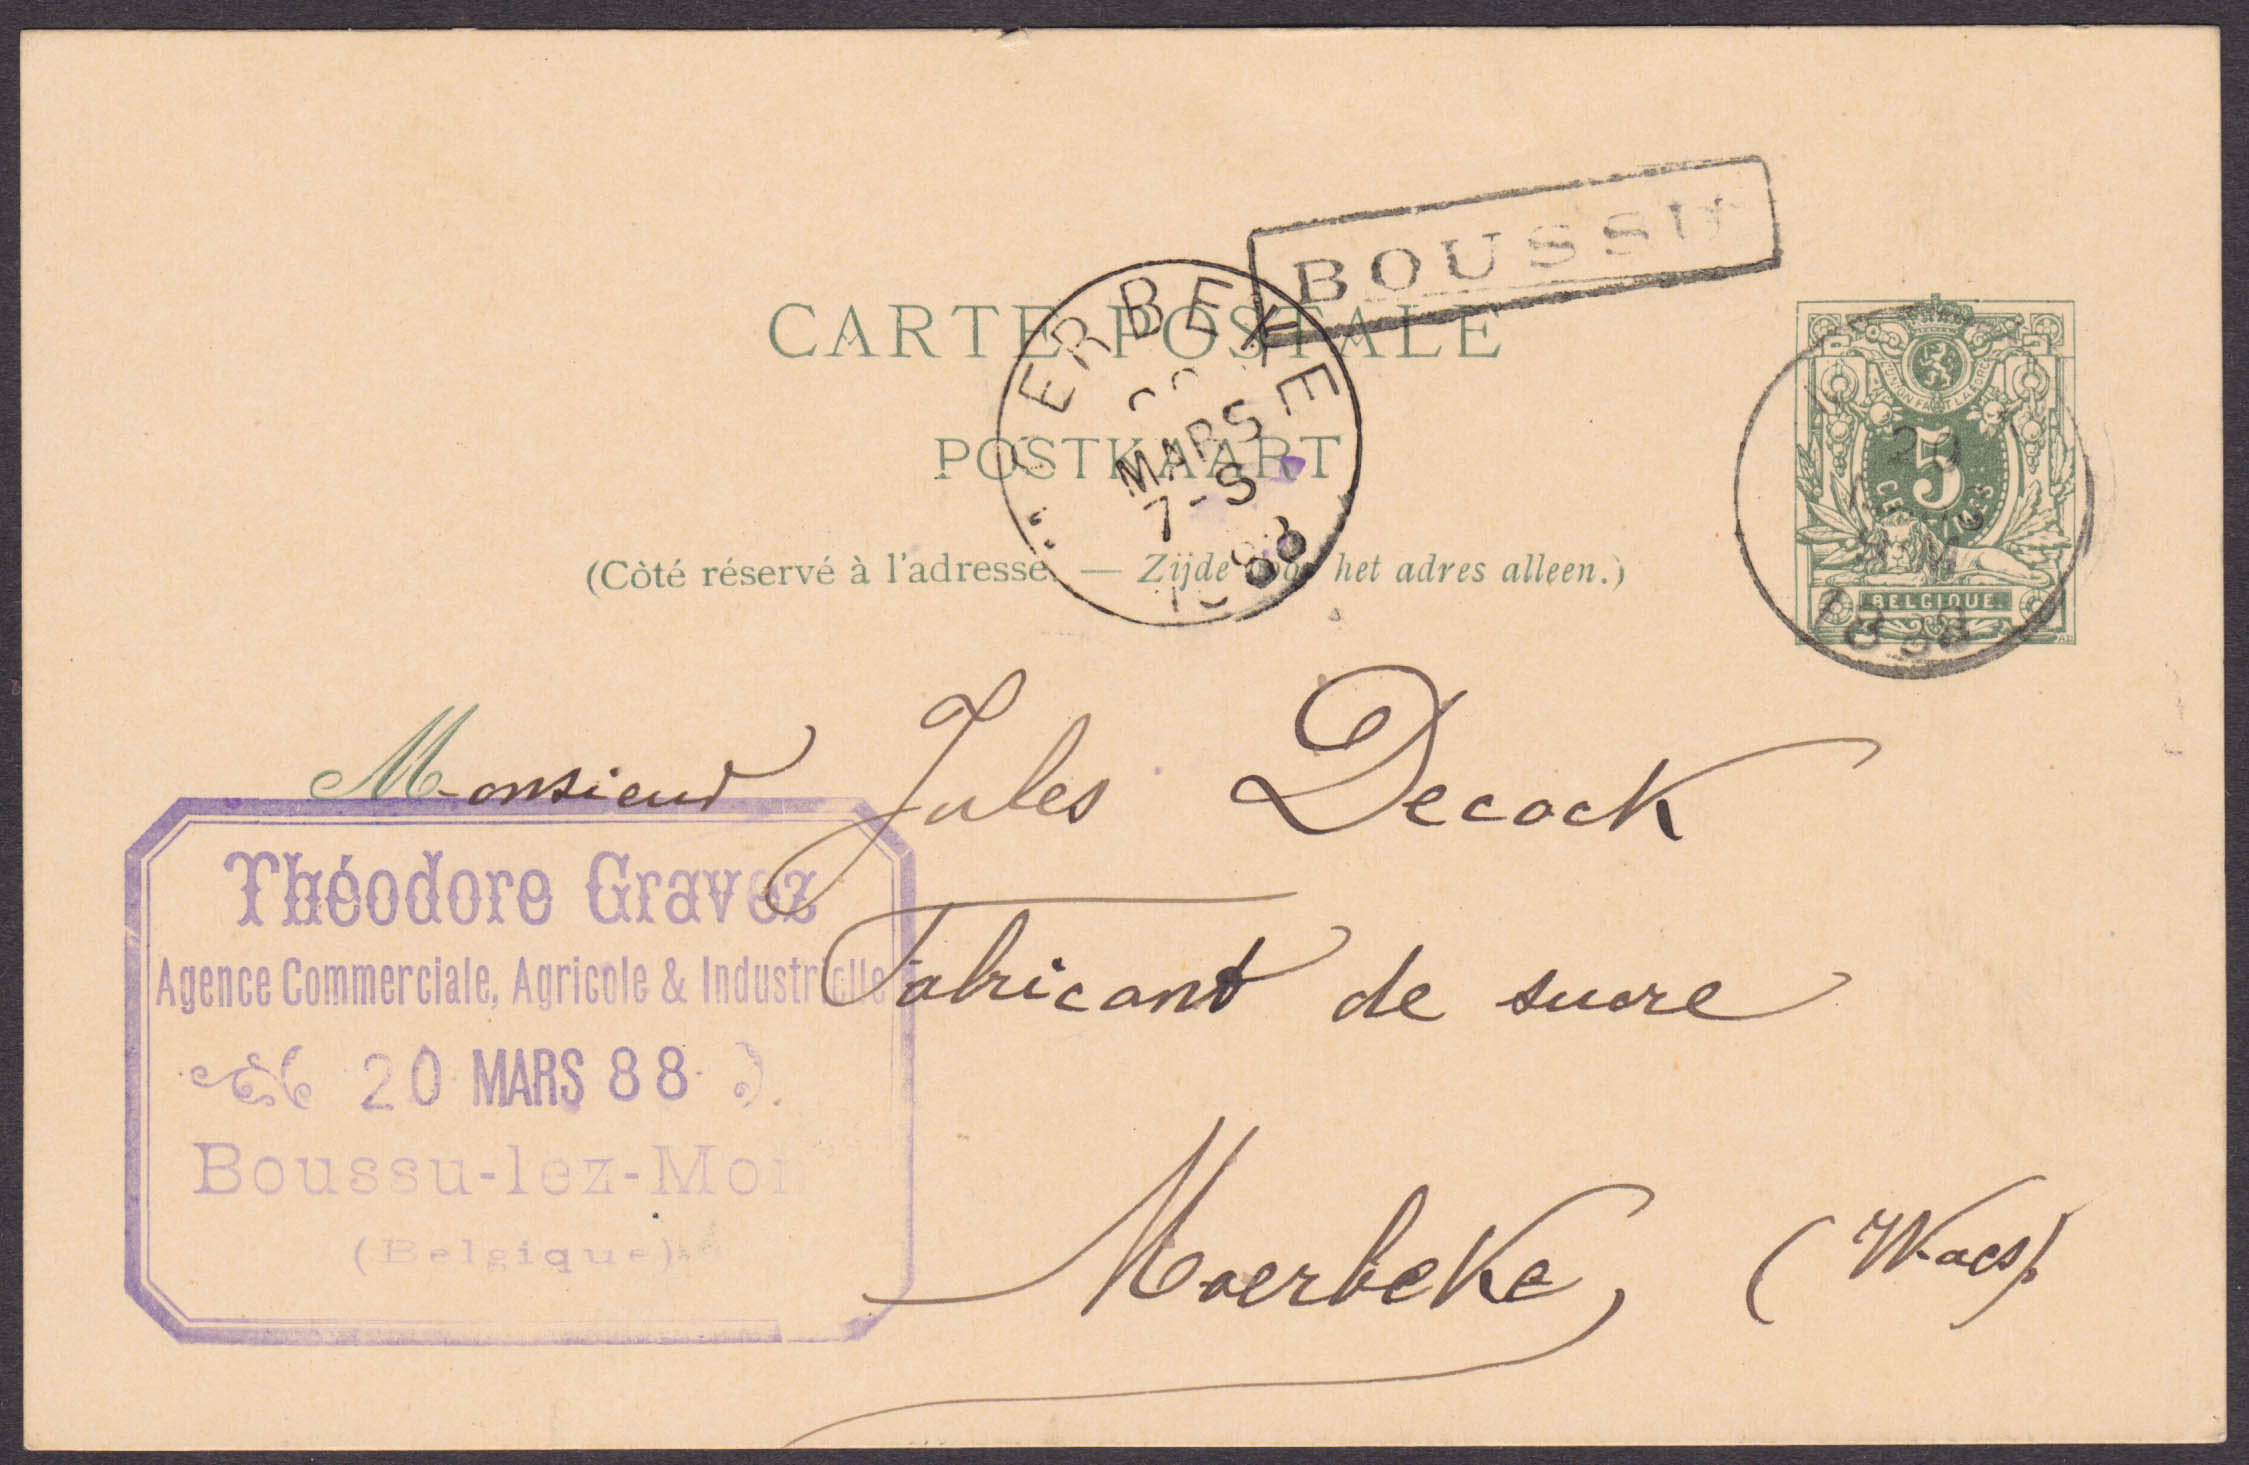 BOUSSU
CARTE POSTALE
POSTKAART
(Côté réservé à l'adresse. — Zijde voor het adres alleen.)
ERBEKE
MARS
7-S
1888
L'UNION FAIT LA FORCE
20
5
CENTIMES
BELGIQUE
1888
Monsieur Jules Decock
Fabricant de sucre
Moerbeke, (Waes)
Théodore Gravez
Agence Commerciale, Agricole & Industrielle
20 MARS 88
Boussu-lez-Mon
(Belgique)